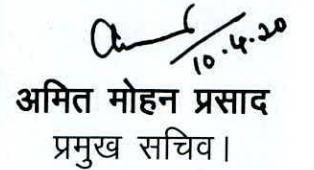 10.4.20
अमित मोहन प्रसाद
प्रमुख सचिव।